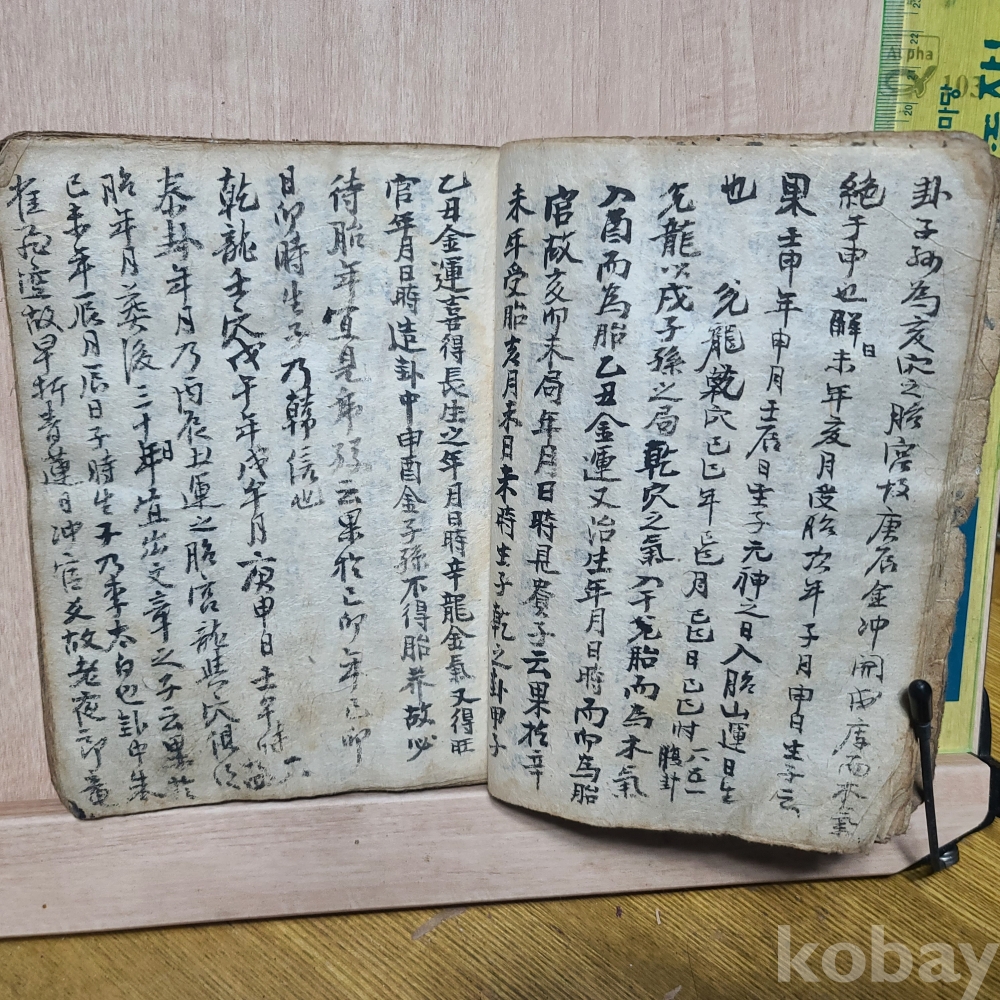 卦子孫為亥穴之胎宮故庚辰金冲開戌庫而水氣
絕于申也解未年亥月日受胎次年子月申日生子云
果壬申年申月壬辰日生子元神之日入胎山運日生
也 兌龍乾穴已巳年已巳月已巳日已巳时
兌龍以戌子孫之局乾穴之氣入于兌胎而為木氣
入酉而為胎乙丑金運又治生年月日時而卯為胎
官故亥卯未局年月日時見貴子云果於辛
未年受胎亥月未日未時生子乾之卦甲子
乙丑金運喜得長生之年月日時辛龍金氣又得旺
官年月日時造卦中申酉金子孫不得胎养故必
待胎年宜見云果於己卯年已卯
日卯時生子乃韓信也
乾龍壬穴戊午年戊午月庚申日壬午时
泰卦年月乃丙辰土運之胎宮龍與穴俱
胎年月葬後二十年日宜出文章之子云果於
已未年辰月辰日子時生子乃李太白也卦中
故早折青蓮月冲官文故老夜郎
Alpha
103
22
21
20
마당
kobay